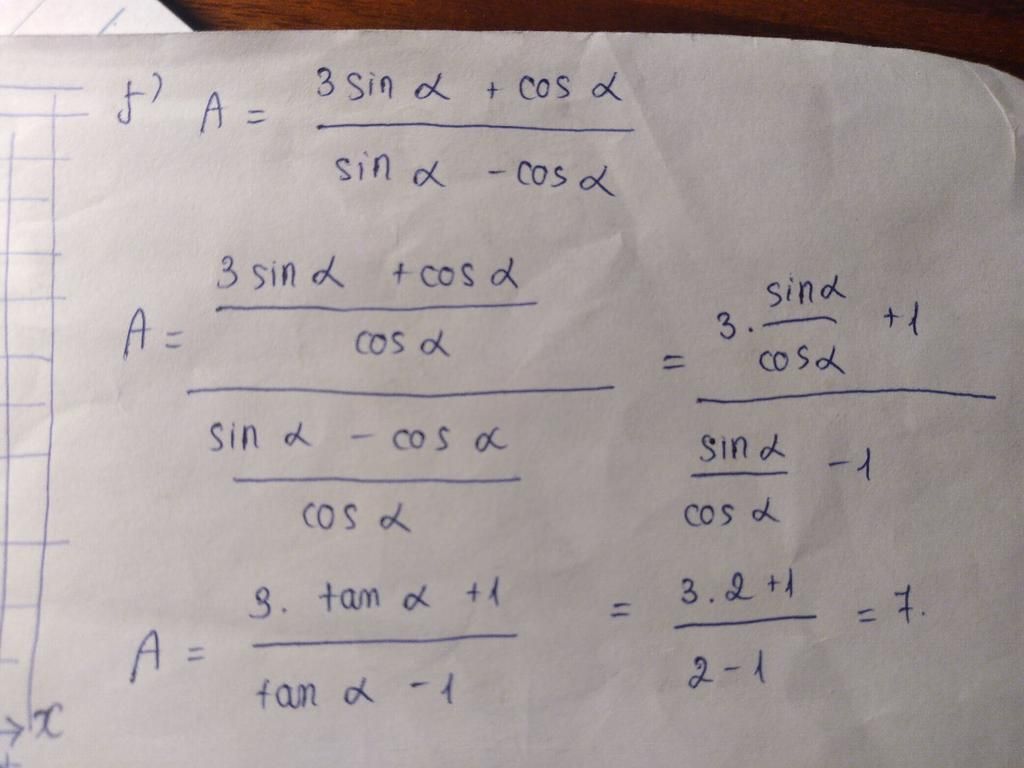 f) A = (3 sin α + cos α) / (sin α - cos α)
A = ((3 sin α + cos α) / cos α) / ((sin α - cos α) / cos α) = (3 . sin α / cos α + 1) / (sin α / cos α - 1)
A = (3. tan α + 1) / (tan α - 1) = (3 . 2 + 1) / (2 - 1) = 7.
x